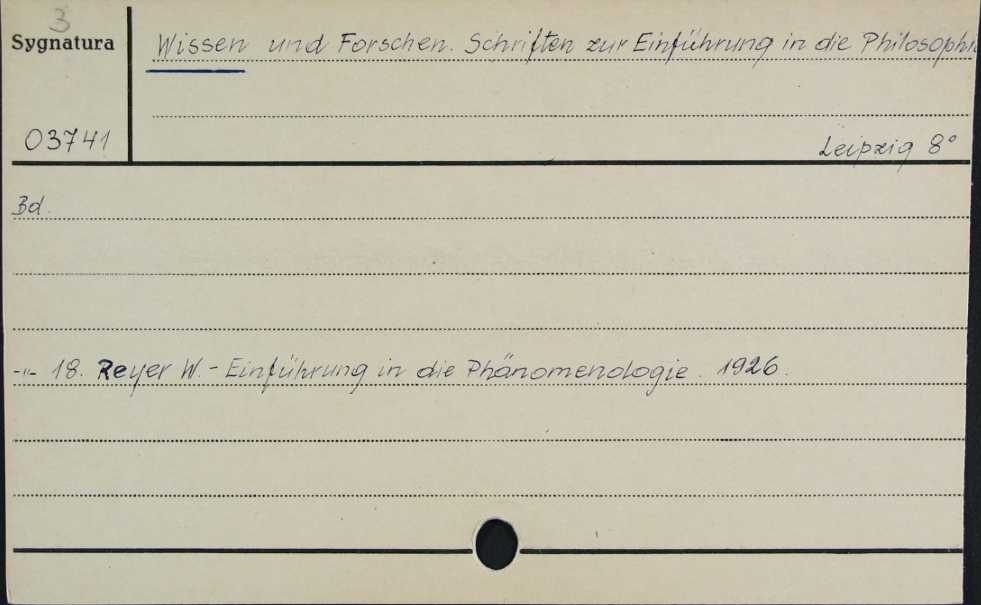 3
Sygnatura
Wissen und Forschen. Schriften zur Einführung in die Philosophie
03741
Leipzig 8°
Bd.
-"- 18. Reyer W. - Einführung in die Phänomenologie. 1926.